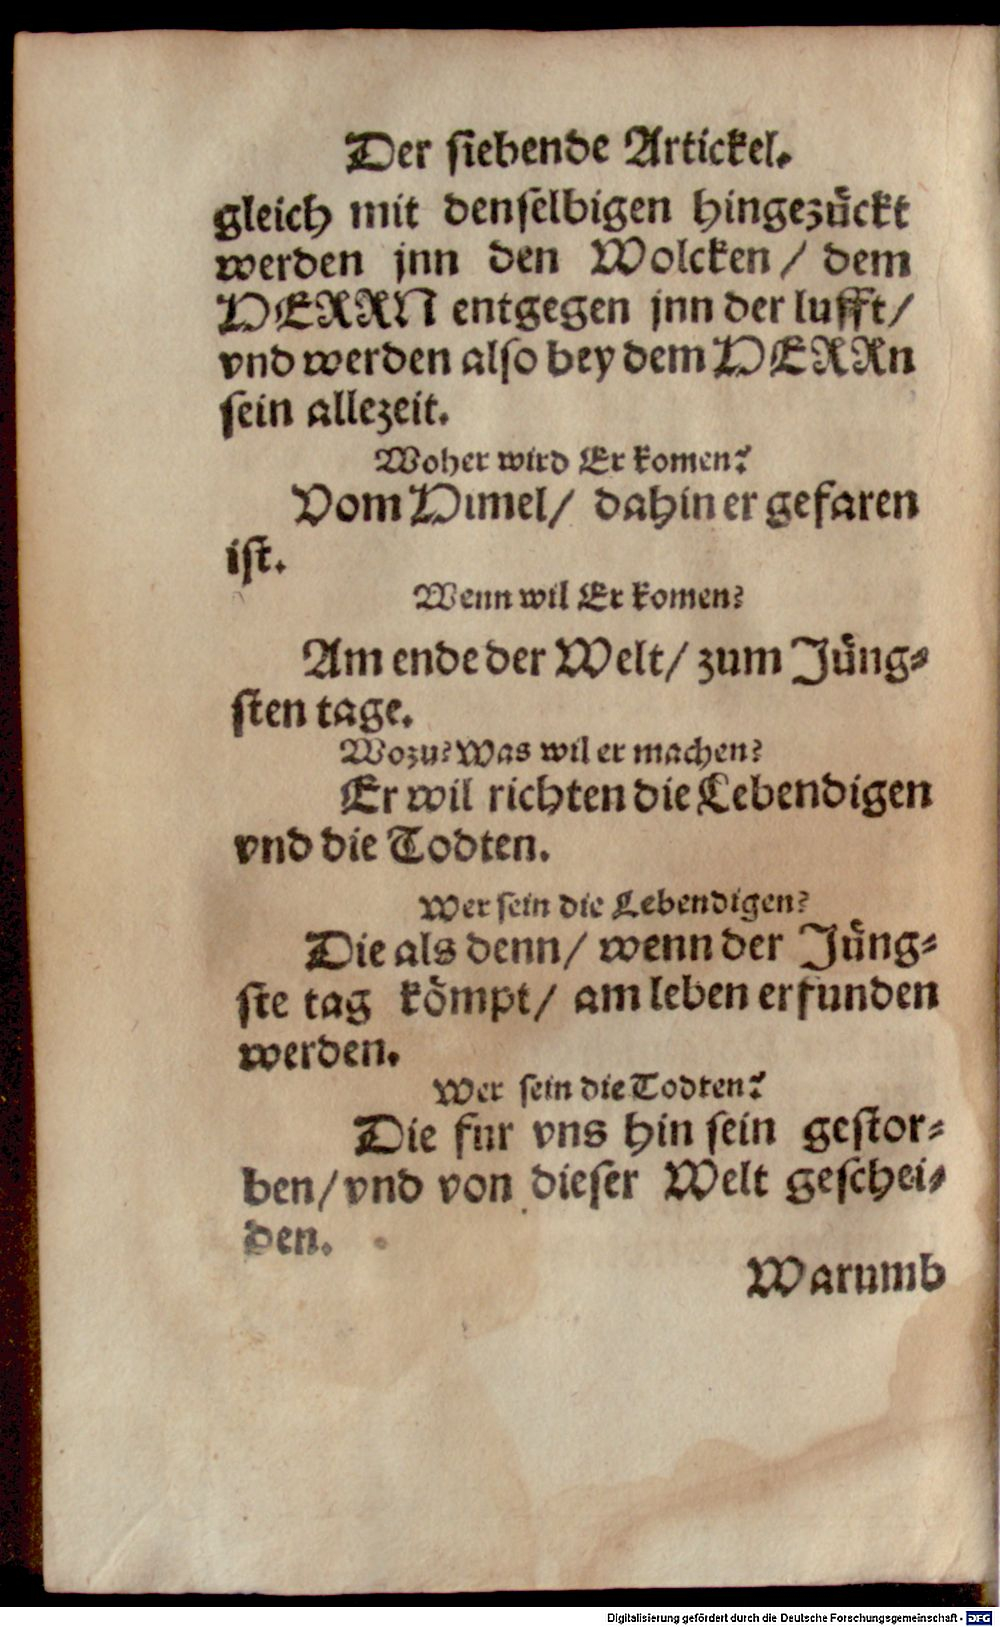 Der siebende Artickel.
gleich mit denselbigen hingezuͤckt
werden jnn den Wolcken / dem
HERRN entgegen jnn der lufft /
vnd werden also bey dem HERRn
sein allezeit.
Woher wird Er komen?
Vom Himel / dahin er gefaren
ist.
Wenn wil Er komen?
Am ende der Welt / zum Juͤng⸗
sten tage.
Wozu? Was wil er machen?
Er wil richten die Lebendigen
vnd die Todten.
Wer sein die Lebendigen?
Die als denn / wenn der Juͤng⸗
ste tag koͤmpt / am leben erfunden
werden.
Wer sein die Todten?
Die fur vns hin sein gestor⸗
ben / vnd von dieser Welt geschei⸗
den.
Warumb
Digitalisierung gefördert durch die Deutsche Forschungsgemeinschaft - DFG